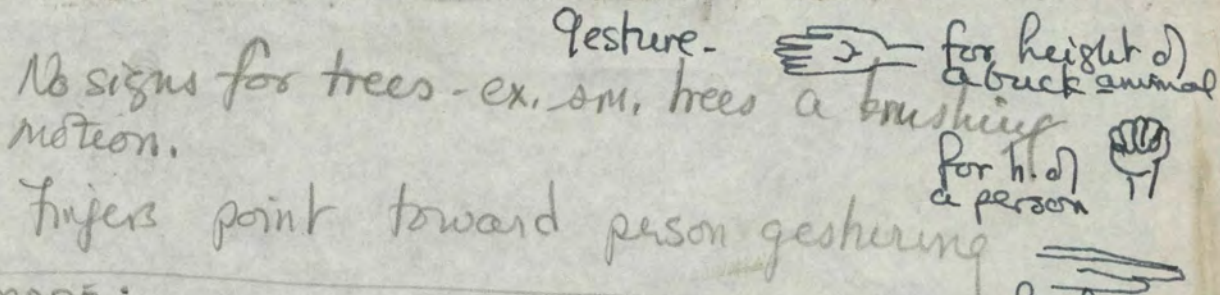 Gesture-
for height of
a buck animal
No signs for trees - ex. sm. trees a brushing
motion.
for h. of
a person
Fingers point toward person gesturing